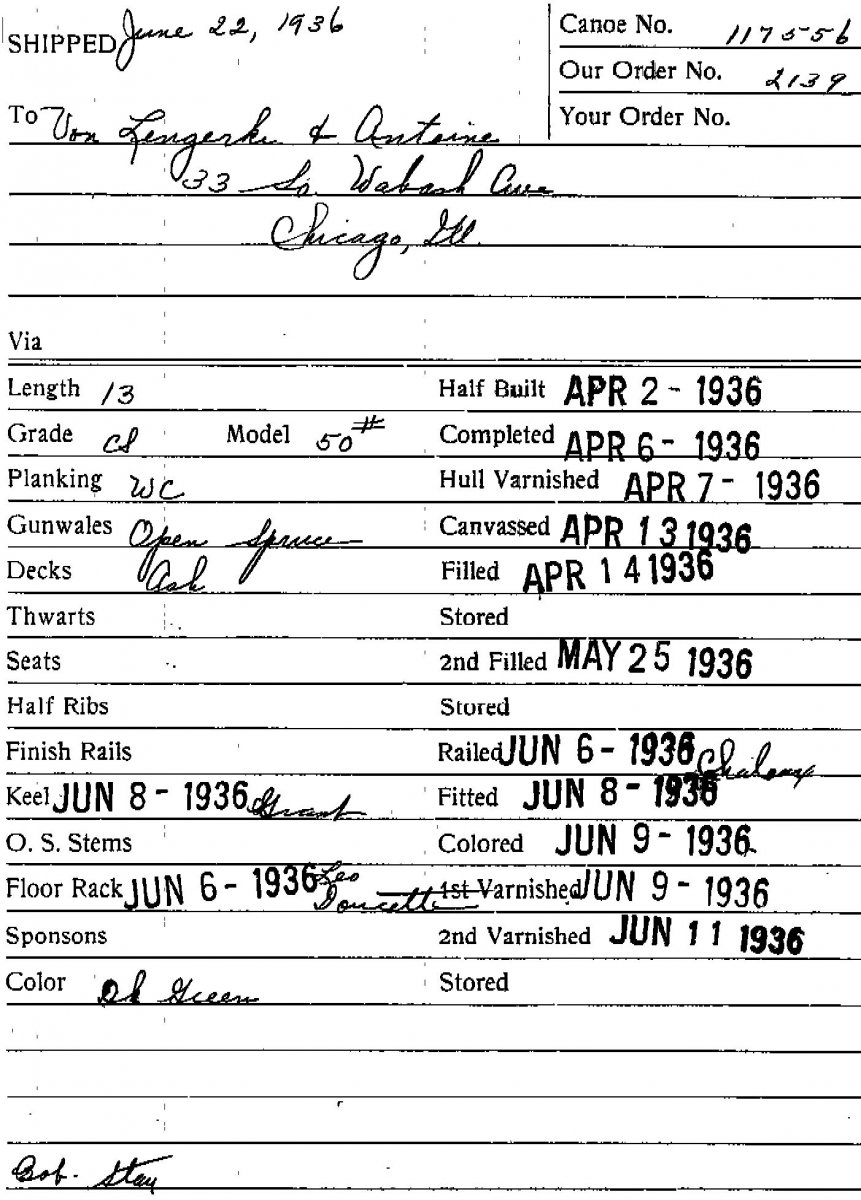 SHIPPED June 22, 1936
Canoe No. 117556
Our Order No. 2139
To Von Lengerke & Antoine
Your Order No.
33 So. Wabash Ave
Chicago, Ill.
Via
Length 13 Half Built APR 2 - 1936
Grade CS Model 50# Completed APR 6 - 1936
Planking WC Hull Varnished APR 7 - 1936
Gunwales Open Spruce Canvassed APR 13 1936
Decks Ash Filled APR 14 1936
Thwarts Stored
Seats 2nd Filled MAY 25 1936
Half Ribs Stored
Finish Rails Railed JUN 6 - 1936
Keel JUN 8 - 1936 Grant Fitted JUN 8 - 1936
O. S. Stems Colored JUN 9 - 1936
Floor Rack JUN 6 - 1936 Leo Doucette 1st Varnished JUN 9 - 1936
Sponsons 2nd Varnished JUN 11 1936
Color Dk Green Stored
Bob.